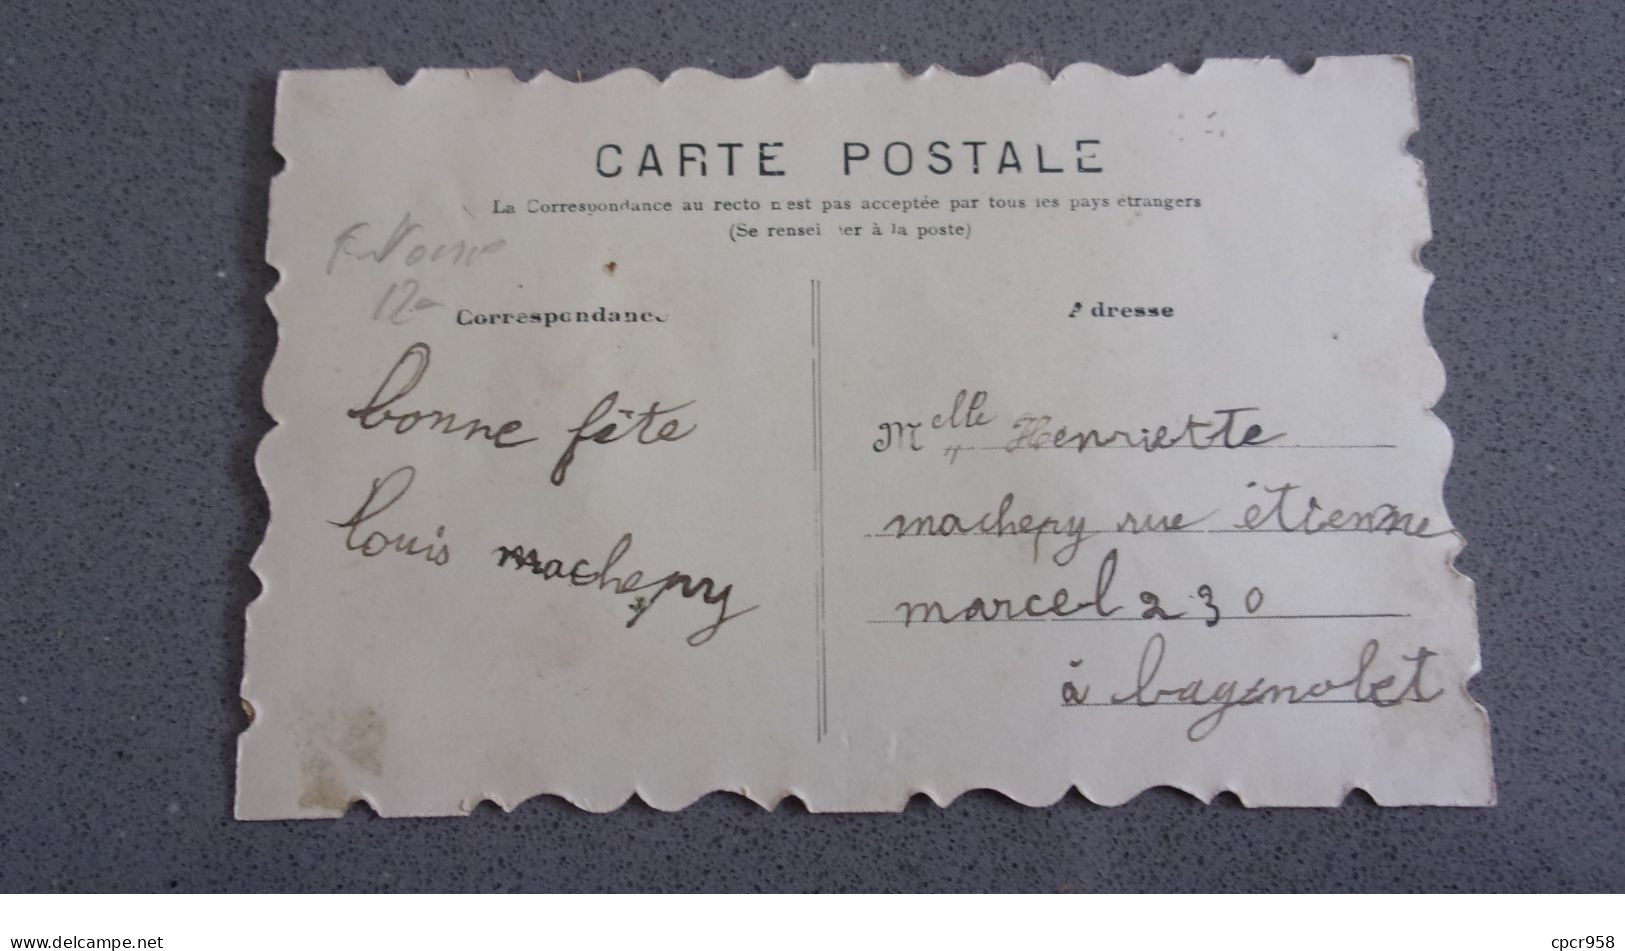 CARTE POSTALE
La Correspondance au recto n est pas acceptée par tous les pays étrangers
(Se rensei ner à la poste)
12-
Correspondance
bonne fête
Louis machepy
Adresse
Melle Henriette
machepy rue étienne
marcel 230
à bagnolet
www.delcampe.net
cpcr958